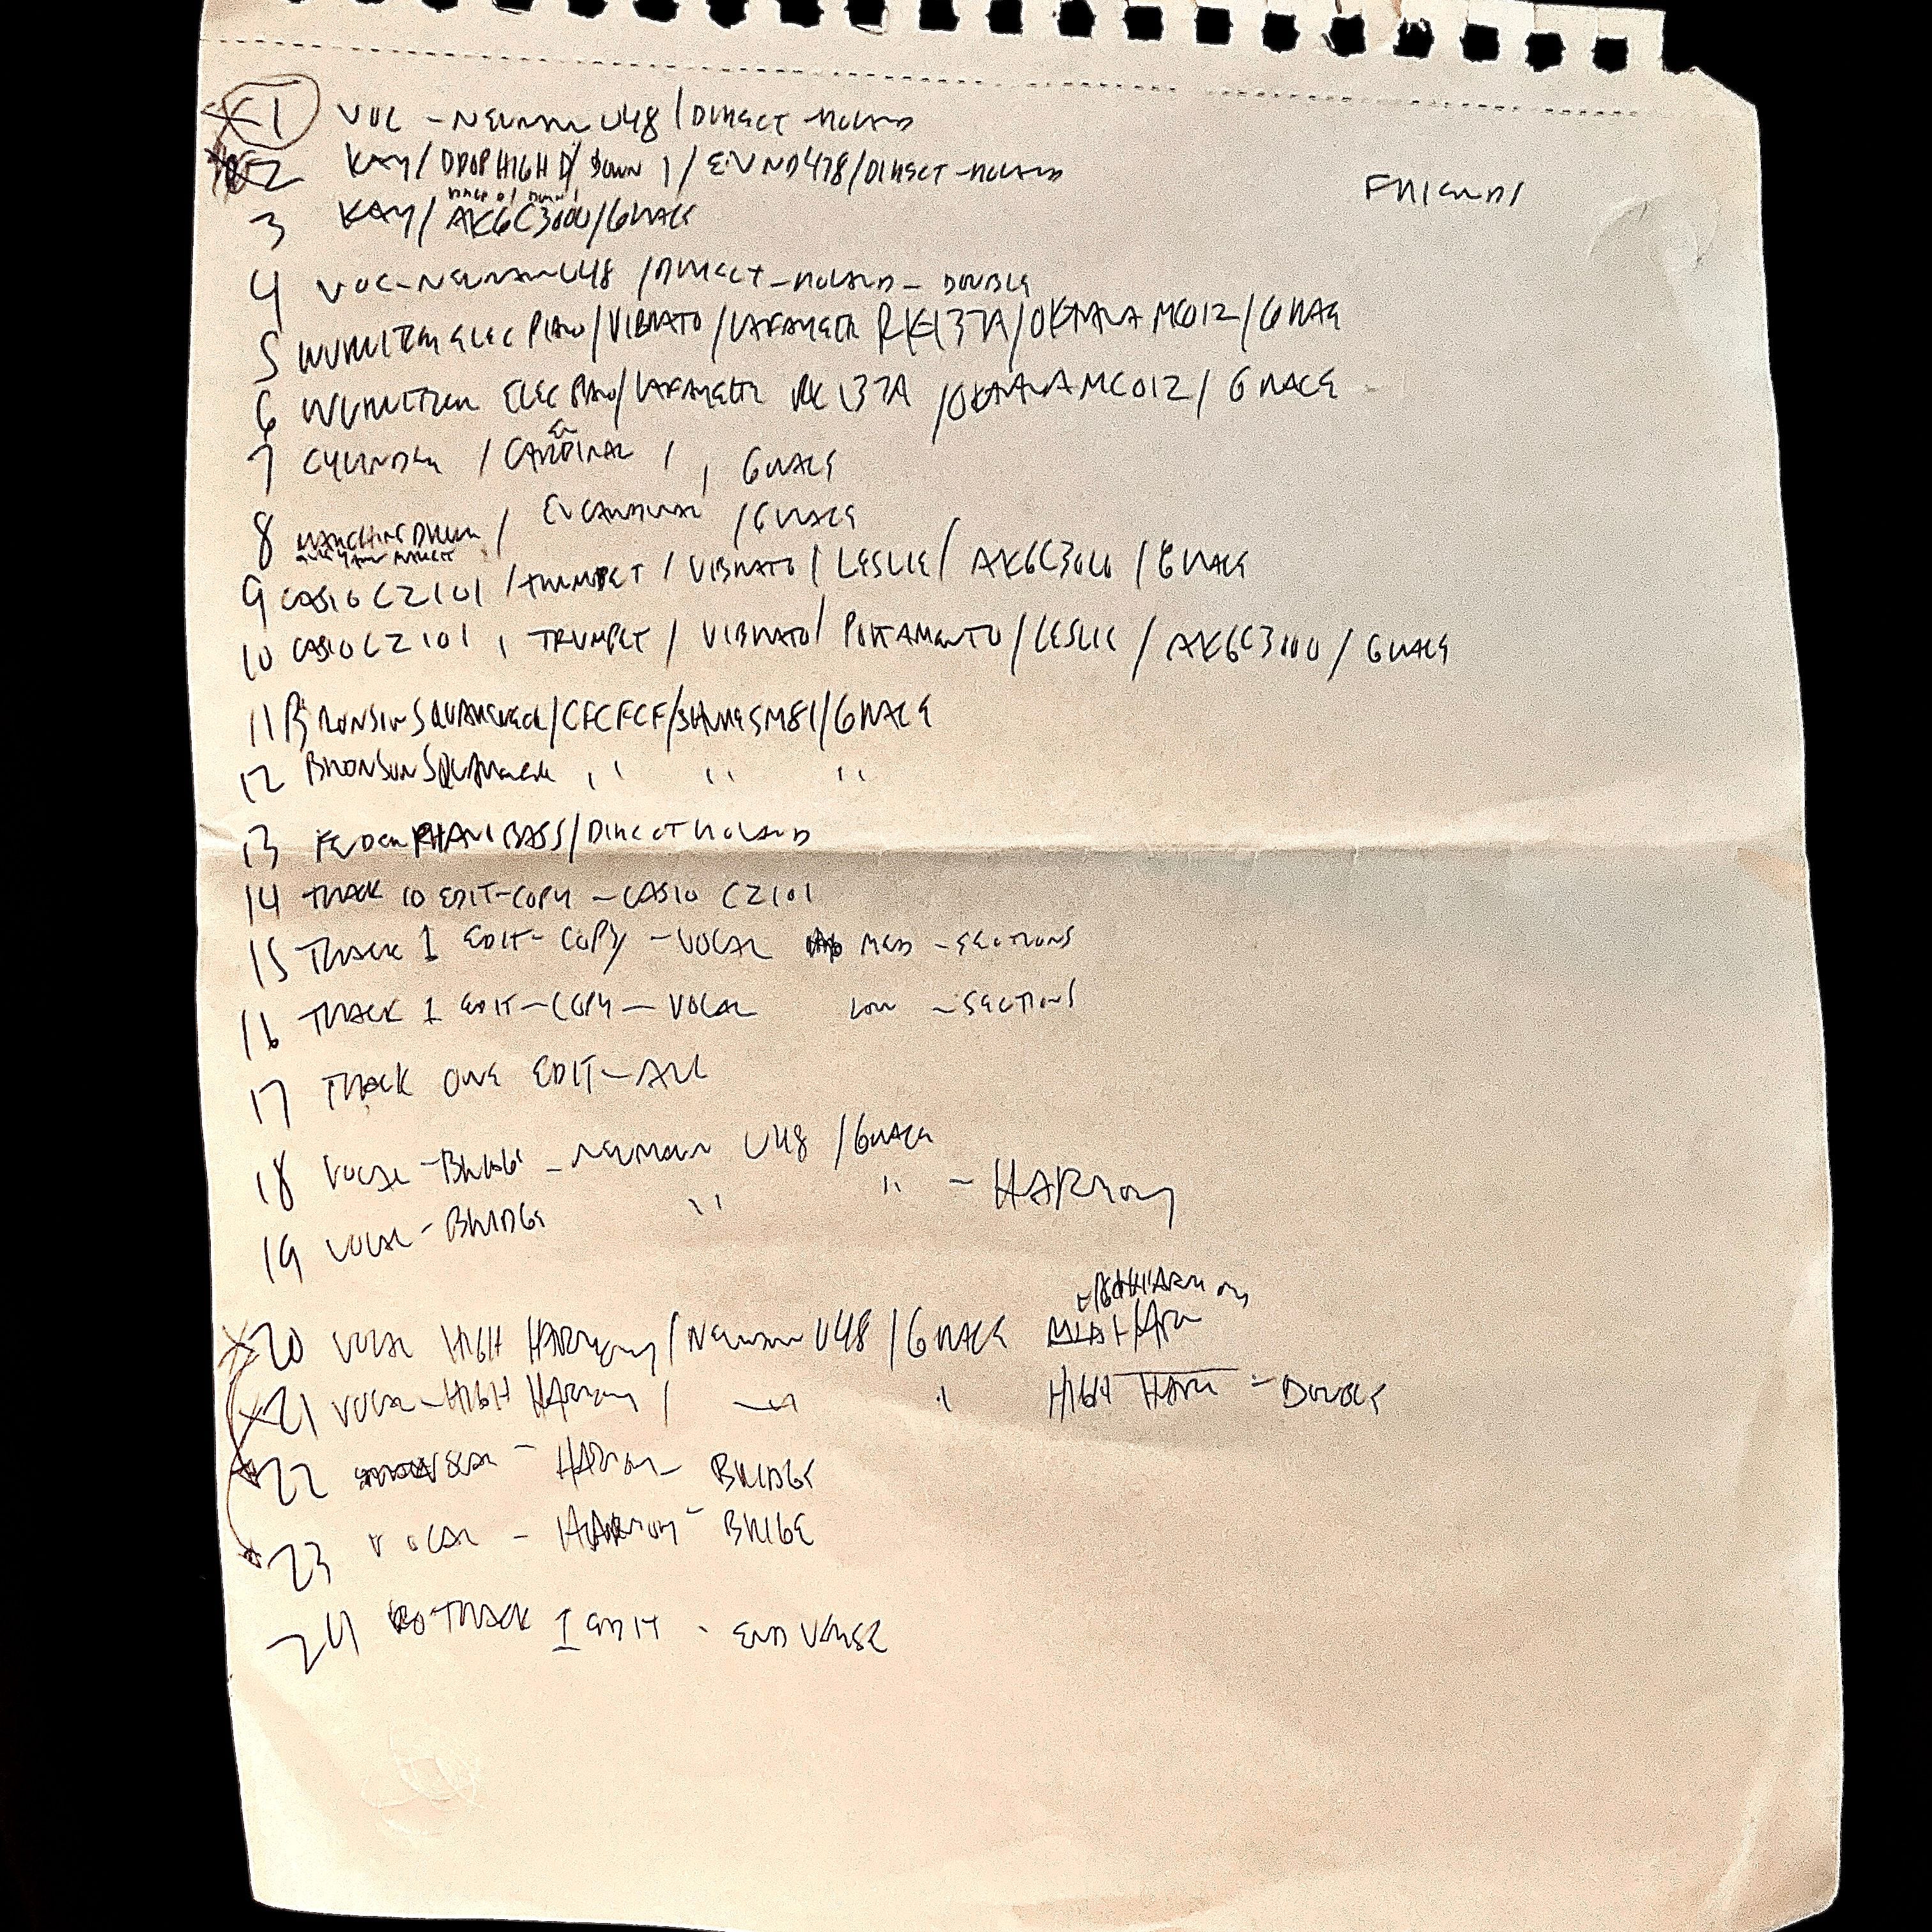 1 VOC - NEUMANN U48 / DIRECT - ROLAND
2 KAY / DROP HIGH D / DOWN 1 / EV ND478 / DIRECT - ROLAND
FRIENDS
3 KAY / AKG C3000 / GRACE
4 VOC - NEUMANN U48 / DIRECT - ROLAND - DOUBLE
5 WURLITZER ELEC PIANO / VIBRATO / LAFAYETTE RK137A / OKTAVA MC012 / GRACE
6 WURLITZER ELEC PIANO / LAFAYETTE RK 137A / OKTAVA MC012 / GRACE
EV
7 CYLINDER / CARDINAL / , GRACE
8 MARCHING DRUM / EV CARDINAL / GRACE
9 CASIO CZ101 / TRUMPET / VIBRATO / LESLIE / AKG C3000 / GRACE
10 CASIO CZ101 , TRUMPET / VIBRATO / PORTAMENTO / LESLIE / AKG C3000 / GRACE
11 BRONSON SQUARENECK / CFCFCF / SHURE SM81 / GRACE
12 BRONSON SQUARENECK " " "
13 BASS / DIRECT ROLAND
14 TRACK 10 EDIT-COPY - CASIO CZ101
15 TRACK 1 EDIT-COPY - VOCAL MED - SECTIONS
16 TRACK 1 EDIT-COPY - VOCAL LOW - SECTIONS
17 TRACK ONE EDIT - ALL
18 VOCAL - BRIDGE - NEUMANN U48 / GRACE
19 VOCAL - BRIDGE " " - HARMONY
20 VOCAL HIGH HARMONY / NEUMANN U48 / GRACE
21 VOCAL - HIGH HARMONY / " " HIGH HARM - DOUBLE
22 - HARMON - BRIDGE
23 VOCAL - HARMONY - BRIGE
24 TRACK 1 EDIT - END VERSE